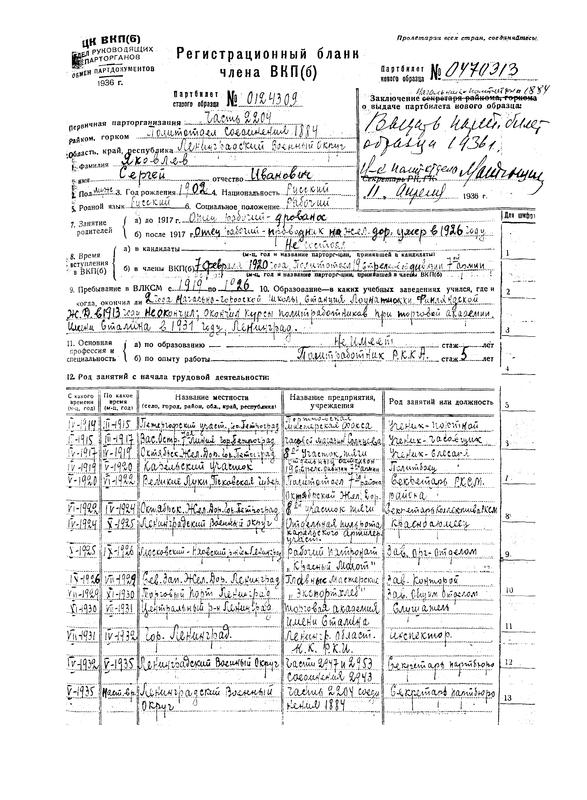 Пролетарии всех стран, соединяйтесь.
ЦК ВКП(б)
ОТДЕЛ РУКОВОДЯЩИХ
ПАРТОРГАНОВ
ОБМЕН ПАРТДОКУМЕНТОВ
1936 г.
Регистрационный бланк
члена ВКП(б)
Партбилет
старого образца № 0124309
Партбилет
нового образца № 0470313
Заключение секретаря райкома, горкома
о выдаче партбилета нового образца:
Выдать парт. билет
образца 1936 г.
11 Апреля 1936 г.
Первичная парторганизация Часть 2204
Райком, горком Политотдел Соединения 1884
Область, край, республика Ленинградский Военный Округ
1. Фамилия Яковлев
имя Сергей отчество Иванович
2. Пол муж 3. Год рождения 1902 4. Национальность Русский
5. Родной язык Русский 6. Социальное положение Рабочий
7. Занятие родителей
а) до 1917 г. Отец рабочий-дровонос
б) после 1917 г. Отец рабочий-проводник на жел. дор. умер в 1926 году
8. Время вступления в ВКП(б)
а) в кандидаты Не состоял
(м-ц, год и название парторган., принявшей в кандидаты)
б) в члены ВКП(б) 7 февраля 1920 года, Политотдел 19 стрелковой дивизии 7й армии
(м-ц, год и название парторган., принявшей в члены ВКП(б)
9. Пребывание в ВЛКСМ с 1919 по 1926 10. Образование—в каких учебных заведениях учился, где и
когда, окончил ли 2 года Начально-Городской Школы, Станция Лоунатиоки Финляндской
Ж.Д. в 1913 году Не окончил; окончил Курсы политработников при торговой академии
имени Сталина в 1931 году. Ленинград.
11. Основная профессия и специальность
а) по образованию Не имеет стаж лет
б) по опыту работы Политработник Р.К.К.А. стаж 5 лет
12. Род занятий с начала трудовой деятельности:
Для шифра
С какого времени (м-ц, год) По какое время (м-ц, год) Название местности (село, город, район, обл., край, республика) Название предприятия, учреждения Род занятий или должность
IV-1914 III-1915 Петергорский участ. гор. Петроград Портновская мастерская Ученик-портной
III-1915 III-1917 Вас. Остр. 7ая Линия гор. Петроград часовой магазин Ученик-часовщик
IV-1917 IV-1919 Октябрьск. Жел. Дор. гор. Петроград 8й Участок тяги Ученик-слесаря
IV-1919 V-1920 Карельский участок Политбоец
V-1920 VI-1922 Великие Луки Псковской губер. Политотдел 7й Октябрьской Жел. Дор. Секретарь Р.К.С.М. района
VI-1922 IV-1924 Октябрьск. Жел. Дор. гор. Петроград 8й участок тяги Секретарь Коллектива РЛКСМ
IV-1924 X-1925 Ленинградский Военный округ Отдельная Карельского Артилер. участ. Красноармеец
X-1925 IX-1926 Московский-Нарвский р-н Ленинград рабочий патронат "Красный Молот" Зав. Орг-Отделом
IX-1926 VII-1929 Сев. Зап. Жел. Дор. Ленинград Главные Мастерские Зав. Конторой
VII-1929 XI-1930 Торговый Порт Ленинград "Экспортхлеб" Зав. Общим Отделом
XI-1930 VII-1931 Центральный р-н Ленинград торговая академия имени Сталина Слушатель
VII-1931 IV-1932 Гор. Ленинград. Ленингр. Област. К.К. Р.К.И. инспектор.
IV-1932 V-1935 Ленинградский Военный Округ части 2947 и 2953 соединения 2943 Секретарь партбюро
V-1935 Наст. вр. Ленинградский Военный Округ часть 2204 соединения 1884 Секретарь партбюро
1
2
3
4
5
8
9
10
11
12
13